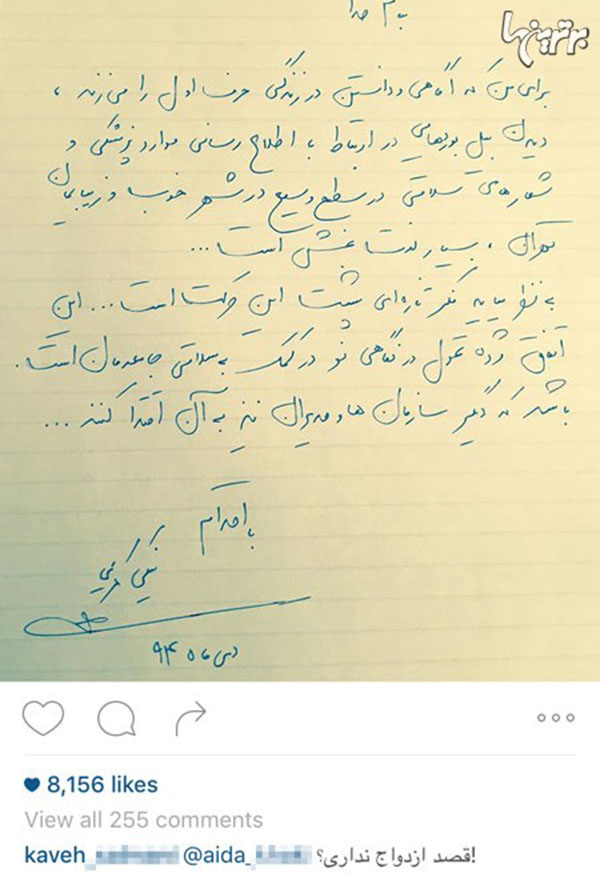 به نام خدا
برترینها
برای من که آگاهی و دانستن در زندگی حرف اول را می‌زند،
دیدن بیل بوردهایی در ارتباط با اطلاع رسانی موارد پزشکی و
شعارهای سلامتی در سطح وسیع در شهر خوب و زیبایمان
تهران، بسیار لذت بخش است...
به نظر میاید فکر تازه‌ای پشت این حرکت است... این
اتفاق مژده تحول در نگاهی نو در کمک به سلامتی جامعه‌مان است.
باشد که دیگر سازمان ها و مدیران نیز به آن اقتدا کنند...
با احترام
نیکی کریمی
دی ماه ۹۴
8,156 likes
View all 255 comments
kaveh_ @aida_ قصد ازدواج نداری؟!